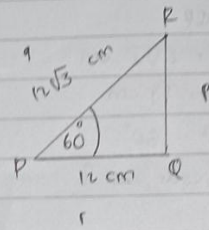 R
q
12√3 cm
P
60°
P
Q
12 cm
r